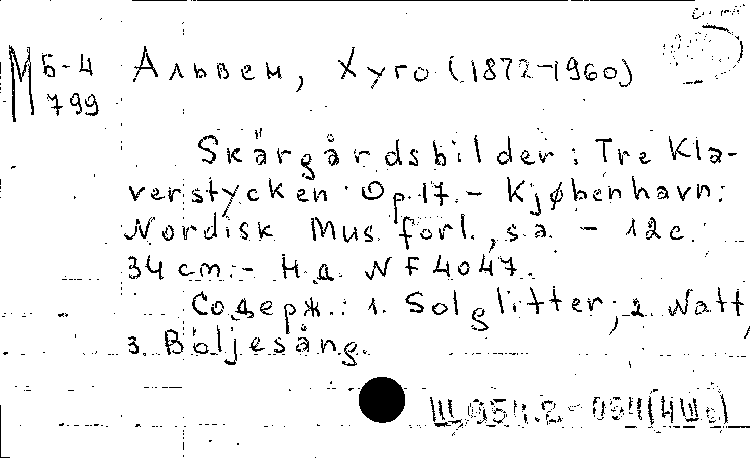 М Б-4 Альвен, Хуго (1872-1960)
799
Skärgårdsbilder: Tre Kla-
verstycken. Op.17. - Kjøbenhavn:
Nordisk Mus. forl., s.a. - 12 с.
34 cm. - Н.д. NF 4047.
Содерж.: 1. Solglitter; 2. Natt,
3. Böljesång.
Щ954.2-054(4Шв)